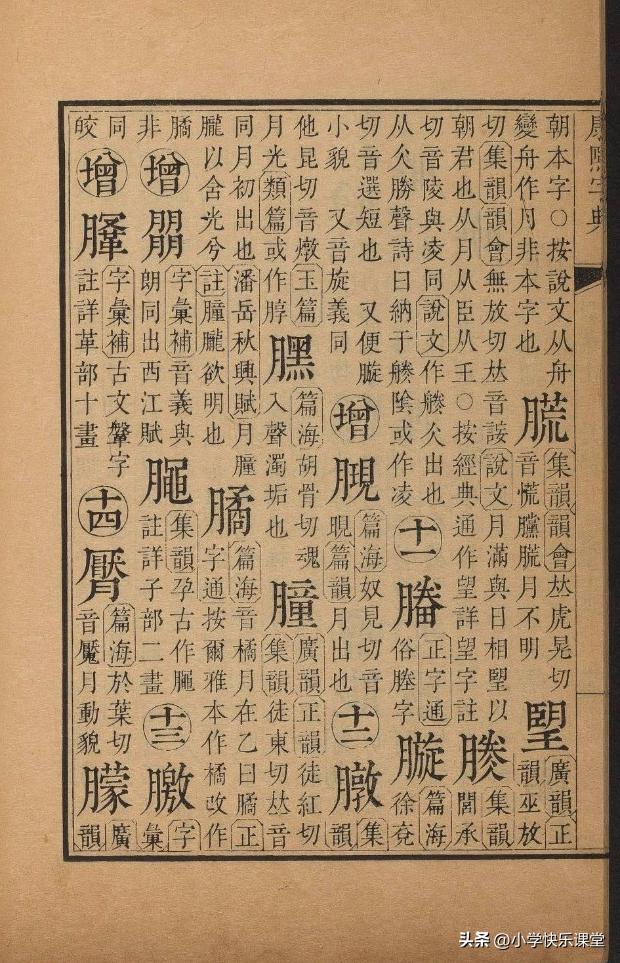 朝本字○按說文从舟
變舟作月非本字也
䑃
集韻韻會𠀤虎晃切
音慌矘䑃月不明
朢
廣韻正
韻巫放
切集韻韻會無放切𠀤音䛃說文月滿與日相朢以
朝君也从月从臣从壬○按經典通作望詳望字註
集韻
閭承
切音陵與凌同說文作仌出也
从仌朕聲詩曰納于隂或作凌
十一
正字通
俗塍字
篇海
徐兗
切音選短也 又便
小貌 又音旋義同
增
篇海奴見切音
晛篇韻月出也
十二
集
韻
他昆切音燉玉篇
月光類篇或作朜
篇海胡骨切魂
入聲濁垢也
朣
廣韻正韻徒紅切
集韻徒東切𠀤音
同月初出也潘岳秋興賦月朣
朧以含光兮註朣朧欲明也
篇海音橘月在乙曰橘正
字通按爾雅本作橘改作
非
增
朤
字彙補音義與
朗同出西江賦
集韻孕古作
註詳子部二畫
十三
字
彙
同
皎
增
字彙補古文鞶字
註詳革部十畫
十四
篇海於葉切
音魘月動貌
朦
廣
韻
头条 @小学快乐课堂